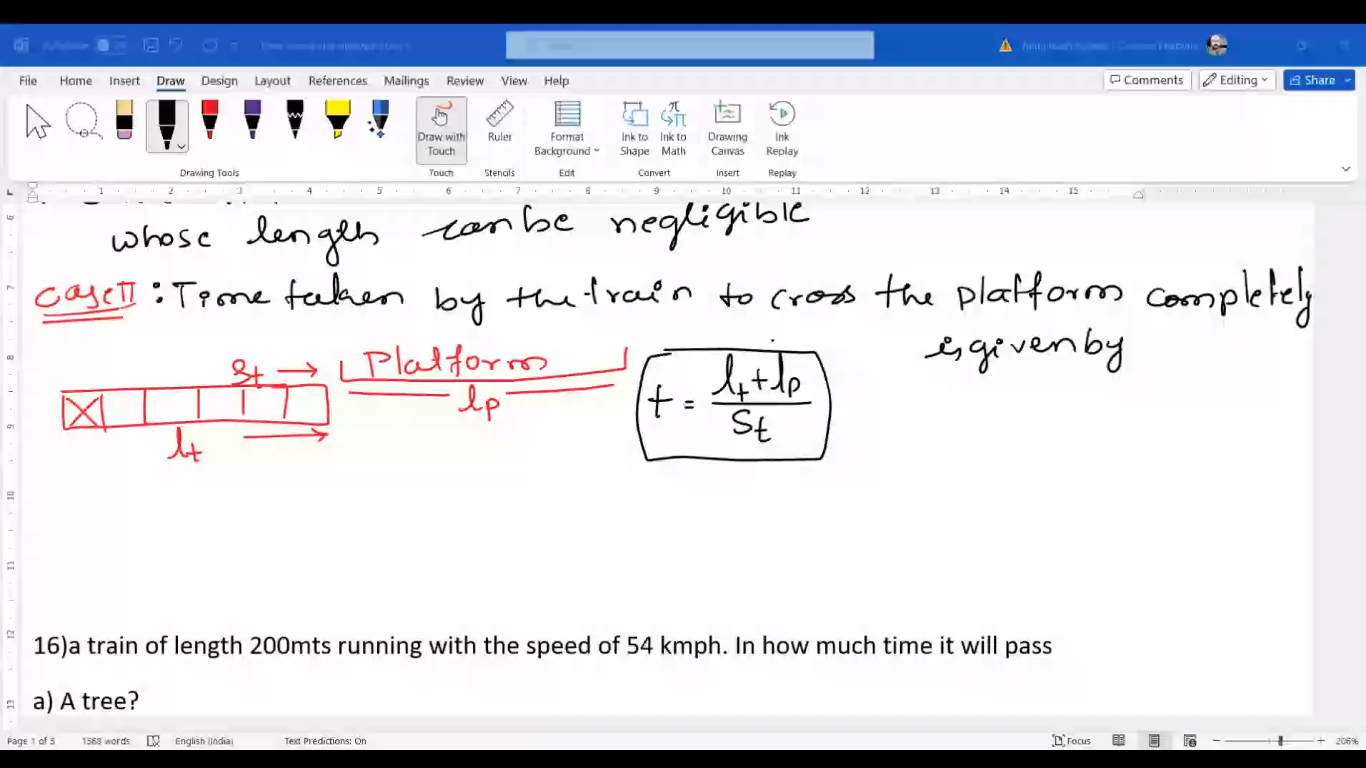 File Home Insert Draw Design Layout References Mailings Review View Help Comments Editing Share
Draw with Touch Ruler Format Background Ink to Shape Ink to Math Drawing Canvas Ink Replay
Drawing Tools Touch Stencils Edit Convert Insert Replay
1 2 3 4 5 6 7 8 9 10 11 12 13 14 15
whose length can be negligible
Case II : Time taken by the train to cross the platform completely
is given by
St Platform
lt lp
t = lt + lp / St
16)a train of length 200mts running with the speed of 54 kmph. In how much time it will pass
a) A tree?
Page 1 of 5 1568 words English (India) Text Predictions: On Focus 206%